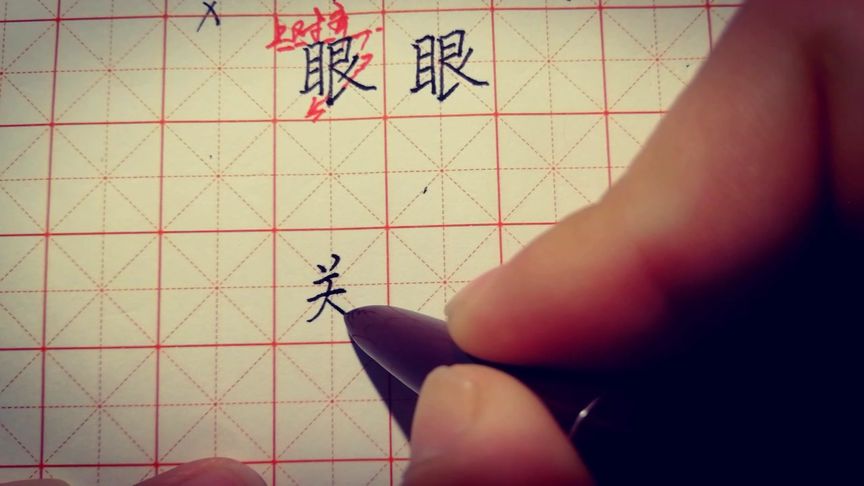 上对齐
眼 眼
关